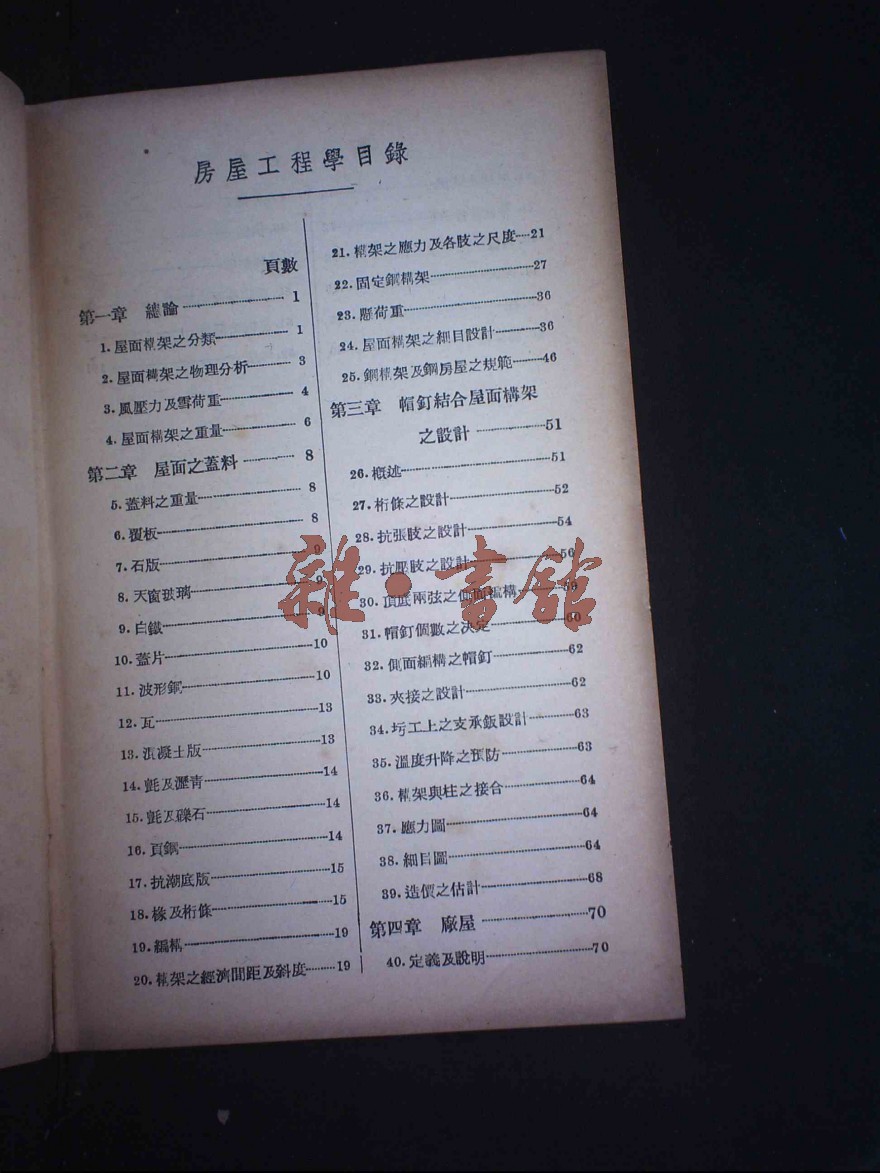 房屋工程學目錄
頁數
第一章 總論 1
1. 屋面構架之分類 1
2. 屋面構架之物理分析 3
3. 風壓力及雪荷重 4
4. 屋面構架之重量 6
第二章 屋面之蓋料 8
5. 蓋料之重量 8
6. 覆板 8
7. 石版 9
8. 天窗玻璃 9
9. 白鐵 9
10. 蓋片 10
11. 波形鋼 10
12. 瓦 13
13. 混凝土版 13
14. 氈及瀝青 14
15. 氈及礫石 14
16. 頁鋼 14
17. 抗潮底版 15
18. 椽及桁條 15
19. 編構 19
20. 構架之經濟間距及斜度 19
21. 構架之應力及各肢之尺度 21
22. 固定鋼構架 27
23. 懸荷重 36
24. 屋面構架之細目設計 36
25. 鋼構架及鋼房屋之規範 46
第三章 帽釘結合屋面構架
之設計 51
26. 概述 51
27. 桁條之設計 52
28. 抗張肢之設計 54
29. 抗壓肢之設計 56
30. 頂底兩弦之側面編構 59
31. 帽釘個數之決定 60
32. 側面編構之帽釘 62
33. 夾接之設計 62
34. 圬工上之支承鈑設計 63
35. 溫度升降之預防 63
36. 構架與柱之接合 64
37. 應力圖 64
38. 細目圖 64
39. 造價之估計 68
第四章 廠屋 70
40. 定義及說明 70
雜·書館